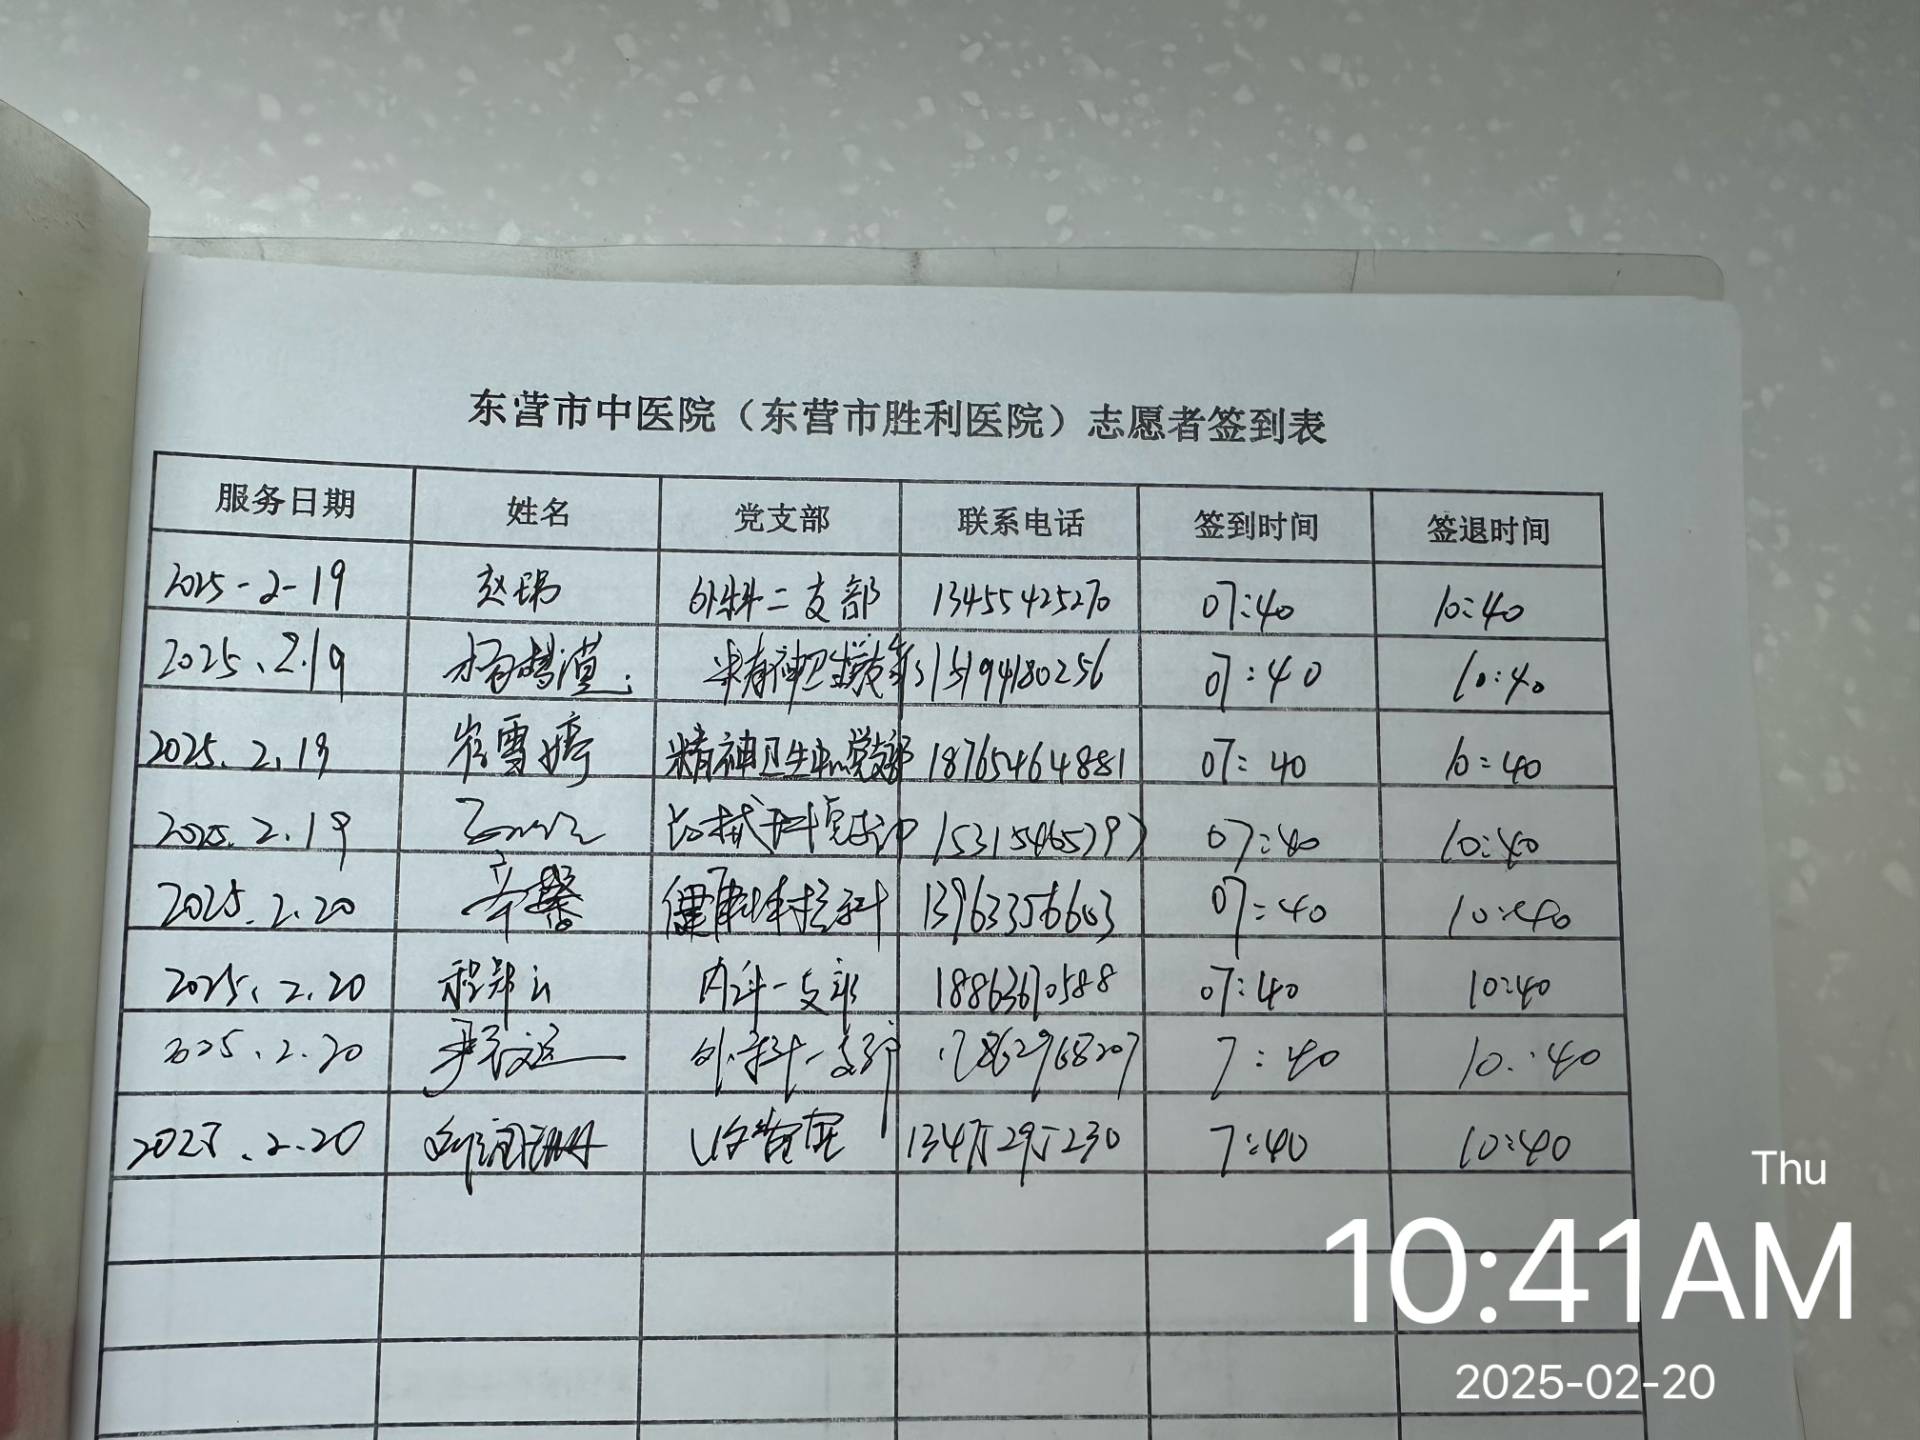 东营市中医院（东营市胜利医院）志愿者签到表
服务日期 姓名 党支部 联系电话 签到时间 签退时间
2025-2-19 赵瑞 外科二支部 13455425270 07:40 10:40
2025.2.19 15194180256 07:40 10:40
2025.2.19 崔雪婷 精神卫生中心党支部 18765464881 07:40 10:40
2025.2.19 07:40 10:40
2025.2.20 辛馨 13963356603 07:40 10:40
2025.2.20 程郑云 内科一支部 18863610588 07:40 10:40
2025.2.20 外科一支部 17862968207 7:40 10:40
2025.2.20 13475295230 7:40 10:40
Thu
10:41AM
2025-02-20